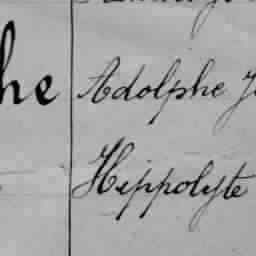 he Adolphe
Hippolyte